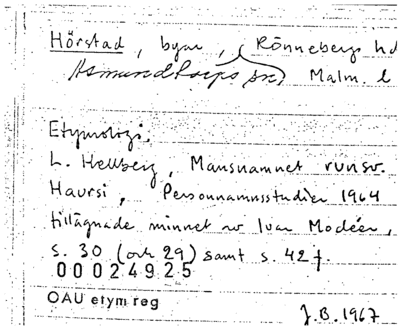 Hörstad, byar, Rönnebergs hd
Asmundtorps sn, Malm. l
Etymologi.
L. Hellberg, Mansnamnet runsv.
Haursi, Personnamnsstudier 1964
tillägnade minnet av Ivar Modéer,
s. 30 (och 29) samt s. 42 f.
00024925
OAU etym reg
J.B. 1967